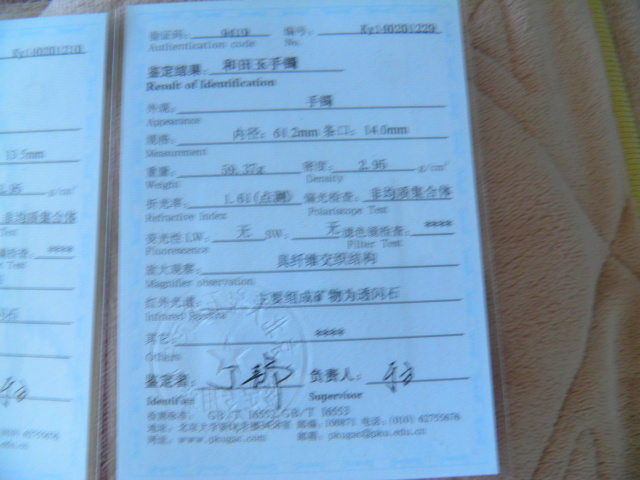 Ky140201210
13.5mm
2.95 g/cm³
非均质集合体
Test
****
Test
闪石
(010) 62755676
验证码: 0419 编号: Ky140201220
Authentication code No.
鉴定结果: 和田玉手镯
Result of Identification
外观: 手镯
Appearance
规格: 内径: 61.2mm 条口: 14.0mm
Measurement
重量: 59.37g 密度: 2.95 g/cm³
Weight Density
折光率: 1.61(点测) 偏光检查: 非均质集合体
Refractive Index Polariscope Test
荧光性 LW: 无 SW: 无 滤色镜检查: ****
Fluorescence Filter Test
放大观察: 具纤维交织结构
Magnifier observation
红外光谱: 主要组成矿物为透闪石
Infrared Spectra
其它: ****
Others
鉴定者: 负责人:
Identified Supervisor
检测标准: GB/T 16552 GB/T 16553
地址: 北京大学 邮编: 100871 电话: (010) 62755676
网址: www.pkugac.com 邮箱: pkugac@pku.edu.cn